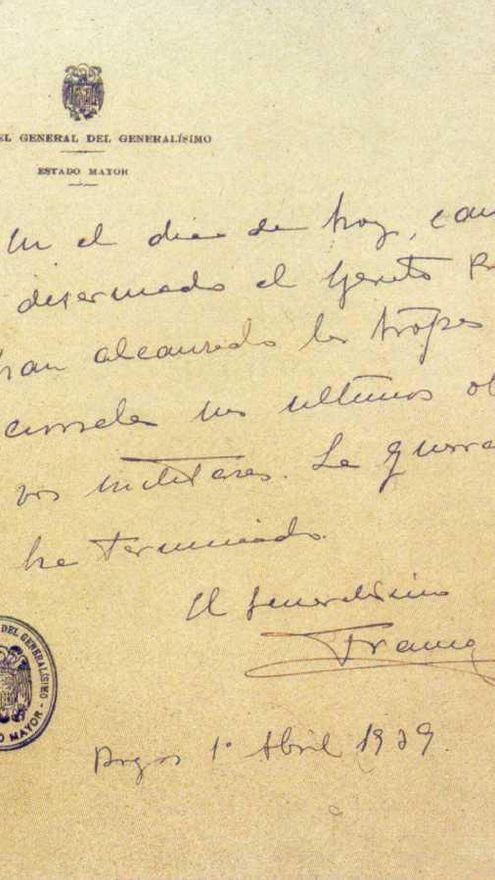 EL GENERAL DEL GENERALÍSIMO
ESTADO MAYOR
En el dia de hoy, cau
desarmado el Ejercito R
han alcanzado las tropas
cionales sus ultimos ob
vos militares. La guerra
ha terminado.
El Generalisimo
Franco
DEL GENERALISIMO
O MAYOR
Burgos 1º Abril 1939.